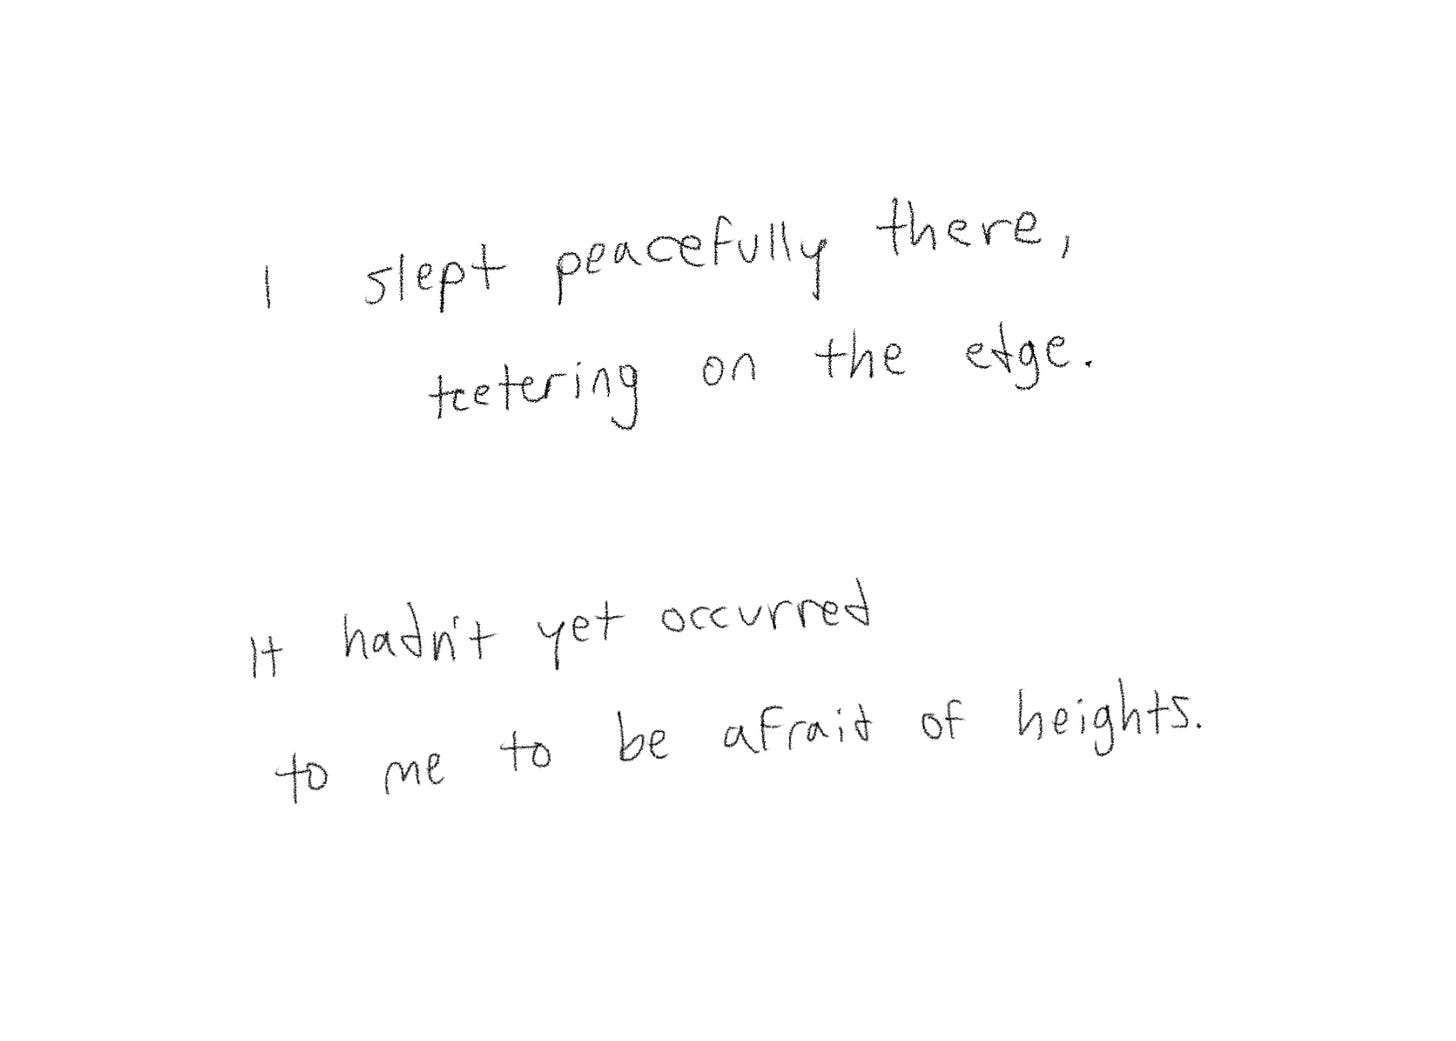 I slept peacefully there,
teetering on the edge.
It hadn't yet occurred
to me to be afraid of heights.